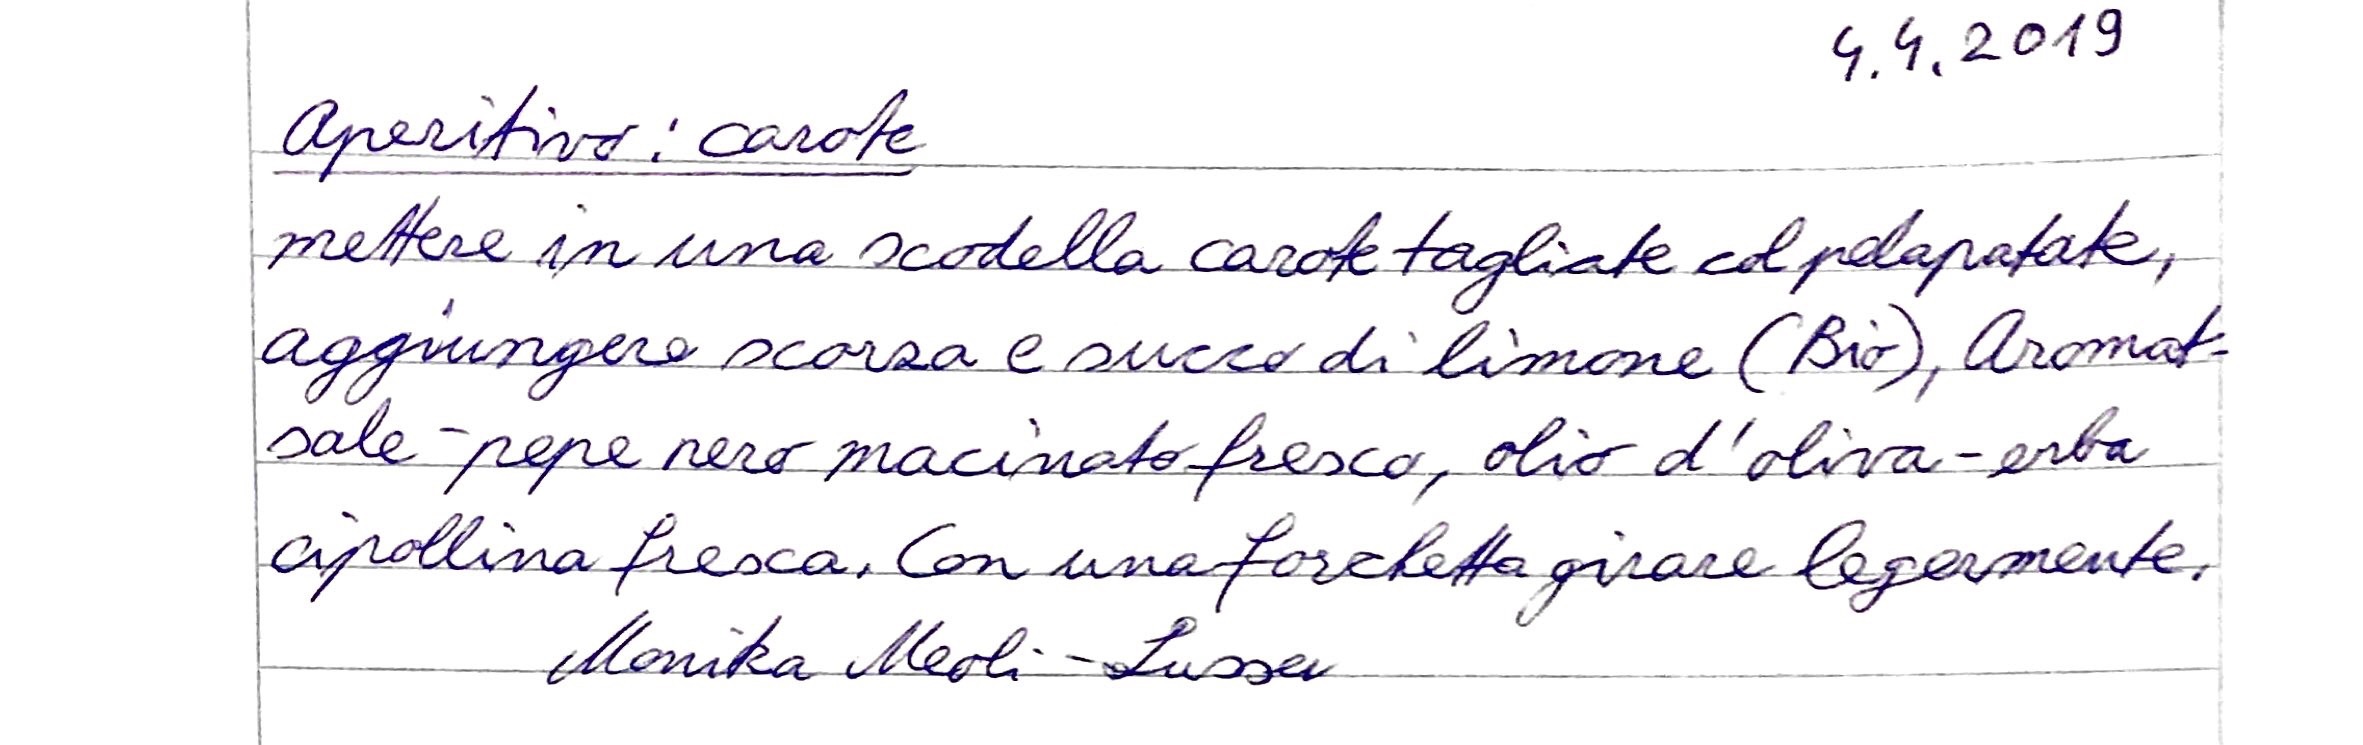 4.4.2019
Aperitivo: carote
mettere in una scodella carote tagliate col pelapatate,
aggiungere scorza e succo di limone (Bio), Aromat-
sale - pepe nero macinato fresco, olio d'oliva - erba
cipollina fresca. Con una forchetta girare legermente.
Monika Meoli - Lusser